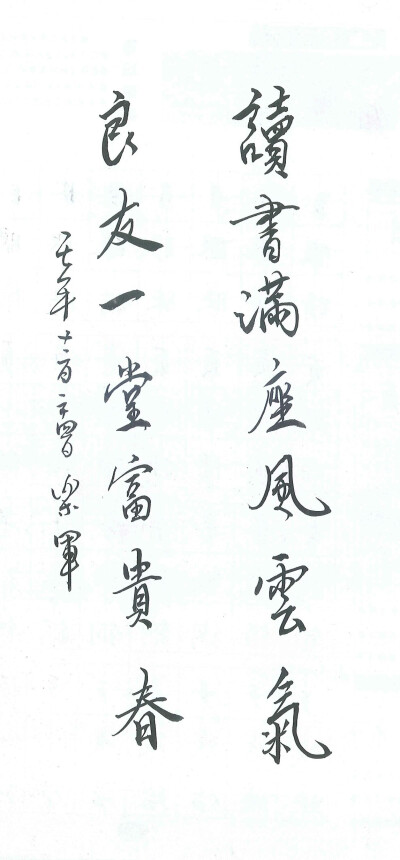 讀書滿座風雲氣
良友一堂富貴春
年十二月二四日 軍